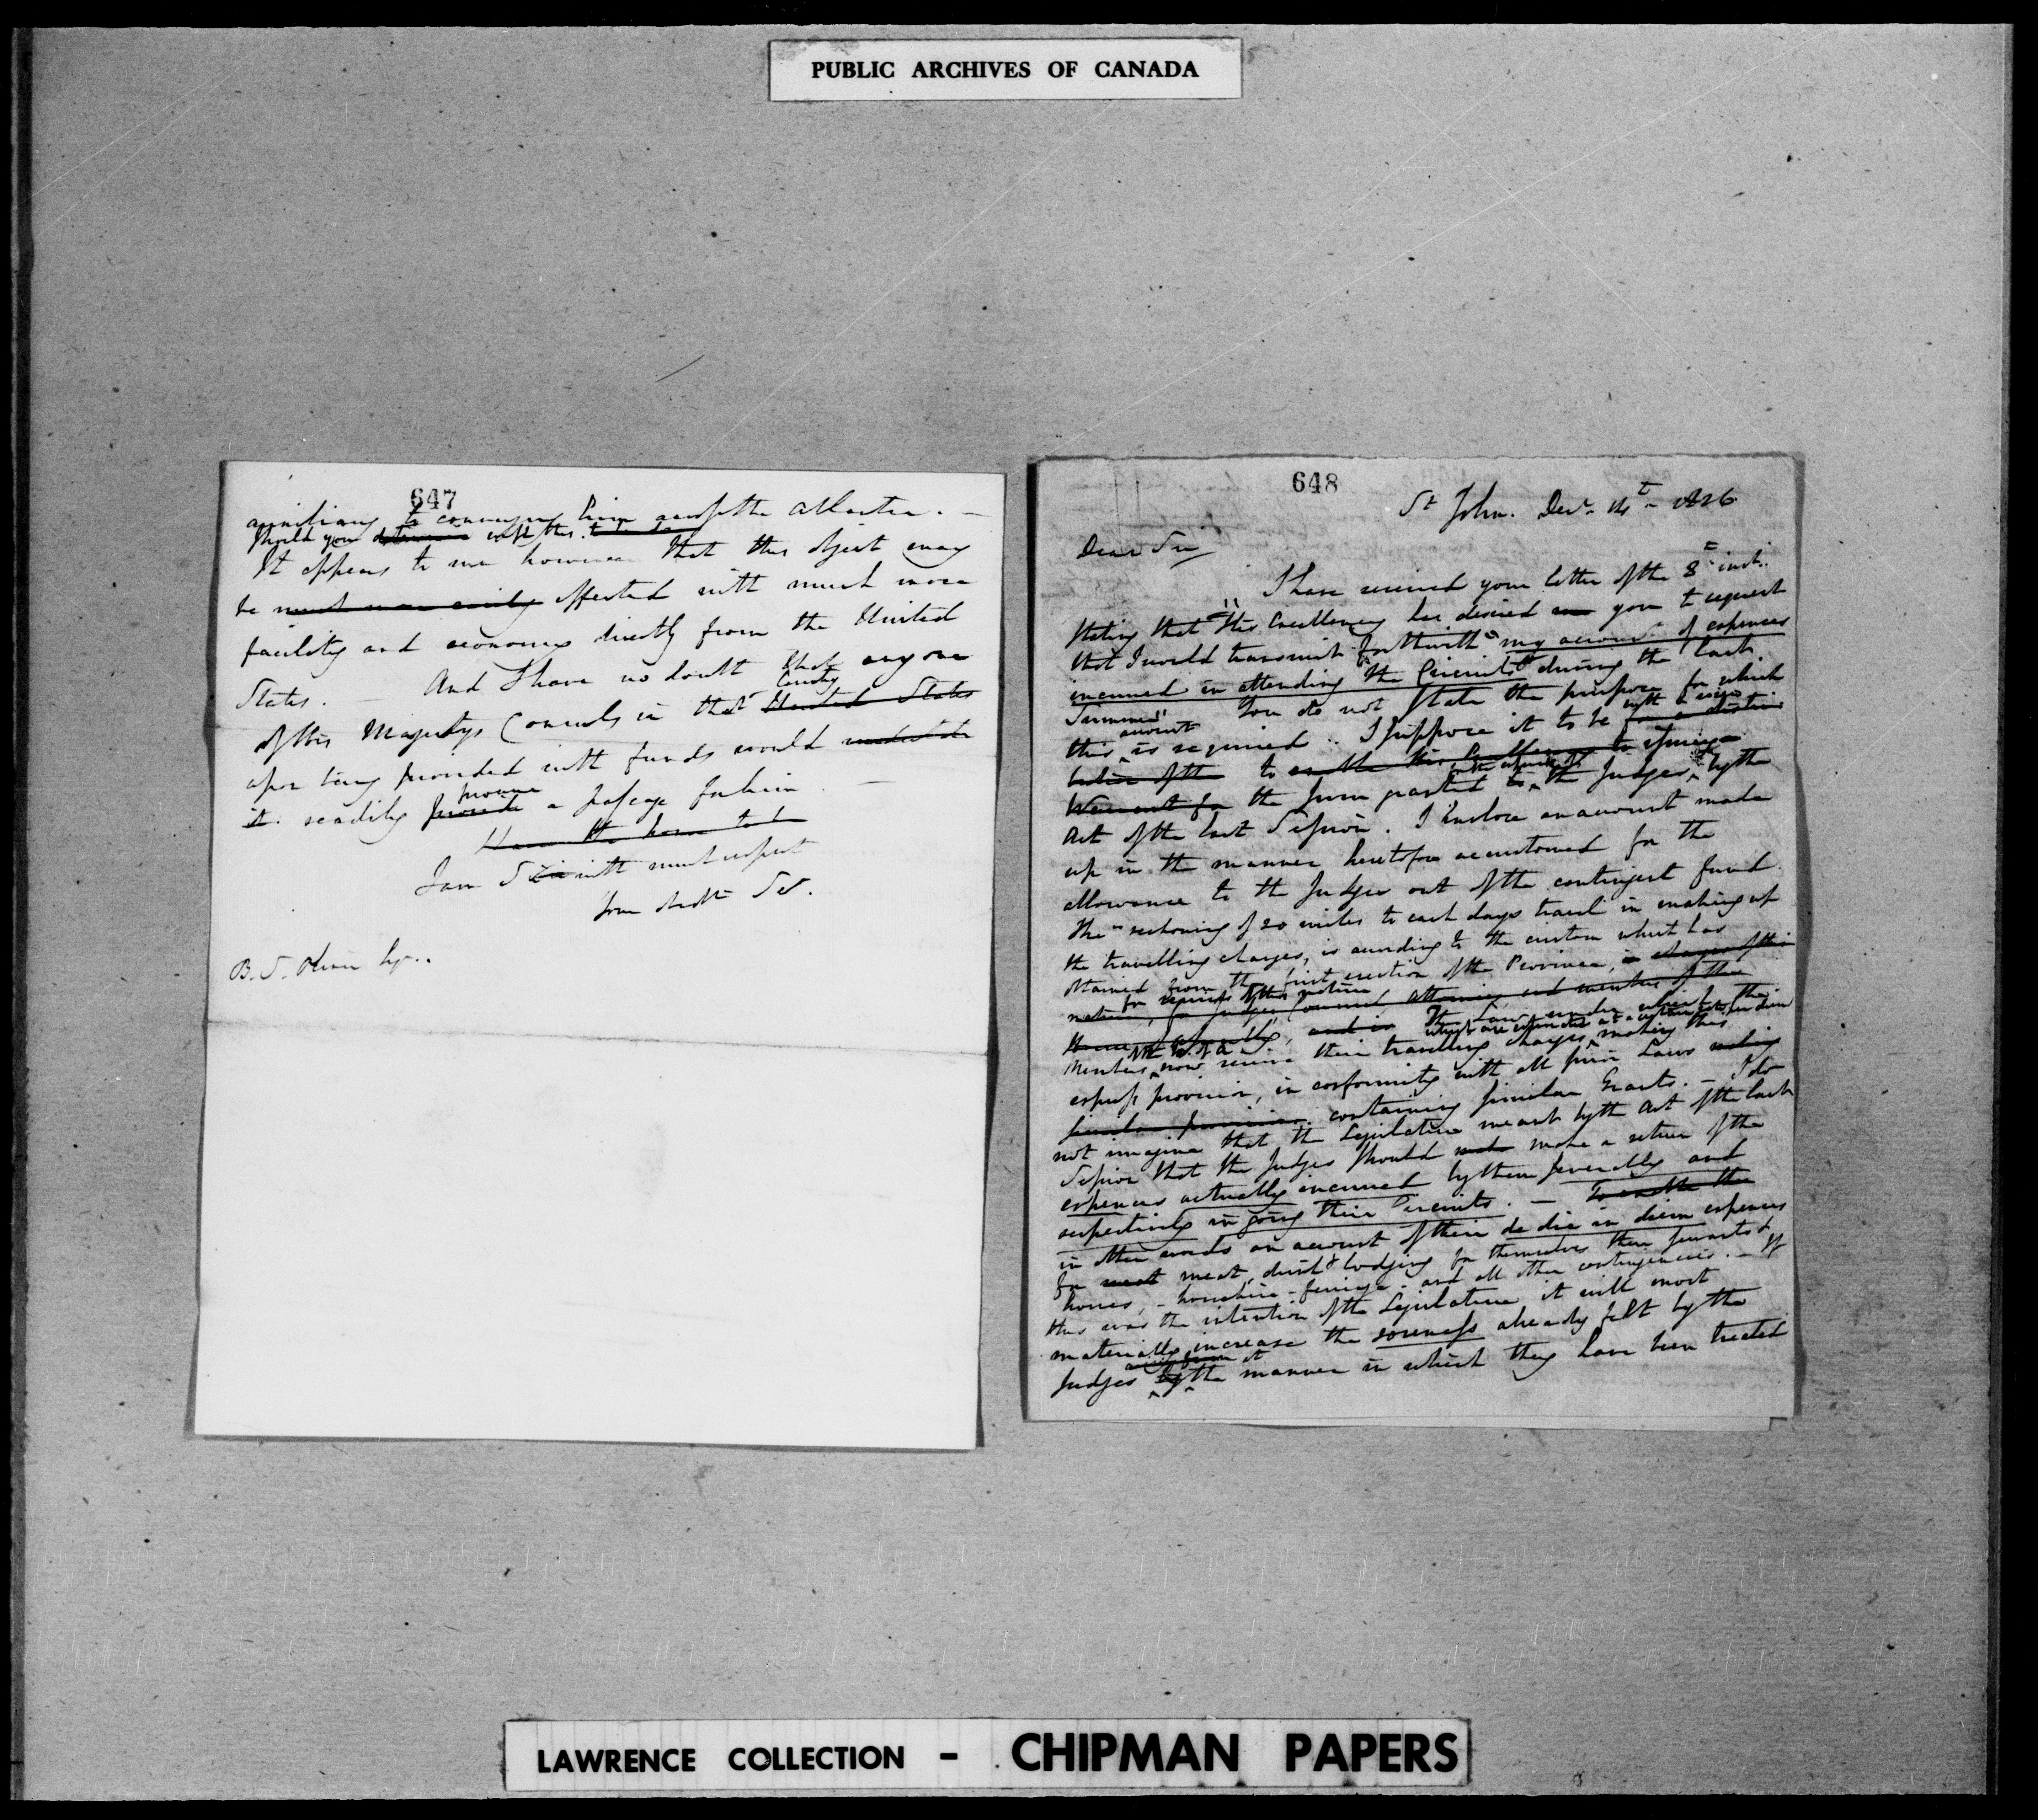 PUBLIC ARCHIVES OF CANADA
647
auxiliary to conveying him across the Atlantic. —
Should you determine
It appears to me however that this object may
be much more easily effected with much more
facility and economy directly from the United
States. — And I have no doubt that any one
Country
of His Majestys Consuls in that United States
upon being provided with funds would undertake
procure
it readily provide a passage for him —
I have the honor to be
I am Sir with much respect
Your obedt Ser.
B. S. Oliver Esq..
648
St John. Decr. 14t. 1826
Dear Sir
I have received your letter of the 8th inst.
stating that "His Excellency has desired you to request
that I would transmit forthwith my account of expences
incurred in attending the Circuits during the last
Summer" You do not state the purpose for which
account
this is required. I suppose it to be
to enable His Excellency to
Warrant for the sum granted to the Judges by the
Act of the last Session. I inclose an account made
up in the manner heretofore accustomed for the
allowance to the Judges out of the contingent fund.
The reckoning of 20 miles to each days travel in making up
the travelling charges, is according to the custom which has
obtained from the first erection of the Province,
for services of this nature
nature, for Judges, Council Attornies and members of the
House of Assembly, and in The Law under which the
Members now receive their travelling charges making this
express provision, in conformity with all prior Laws making
similar provision containing similar Grants. — I do
not imagine that the Legislature meant by the Act of the last
Session that the Judges should make a return of the
expences actually incurred by them severally and
respectively in going their Circuits. — To enable the
in other words an account of their de die in diem expences
for meat, drink & lodging for themselves their servants &
horses, – horsehire – ferriage – and all other contingencies. — If
this was the intention of the Legislature it will most
materially increase the soreness already felt by the
Judges by the manner in which they have been treated
LAWRENCE COLLECTION - CHIPMAN PAPERS